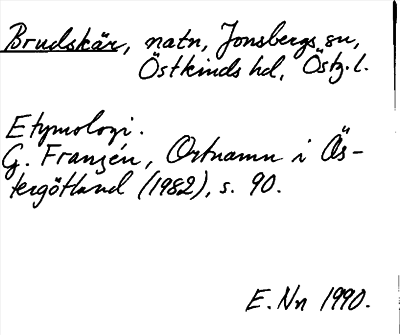 Brudskär, natn, Jonsbergs sn,
Östkinds hd, Östg. l.
Etymologi.
G. Franzén, Ortnamn i Ös-
tergötland (1982), s. 90.
E. Nn 1990.